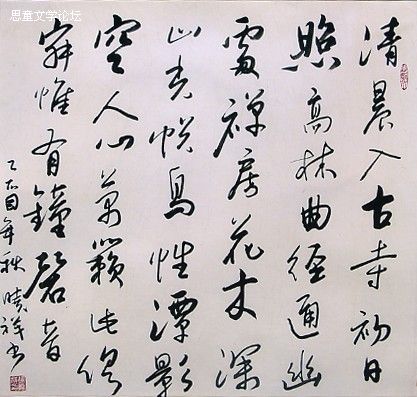 思童文学论坛
清晨入古寺初日
照高林曲徑通幽
處禅房花木深
山光悦鳥性潭影
空人心萬籟此俱
寂惟有鐘磬音
乙酉年秋